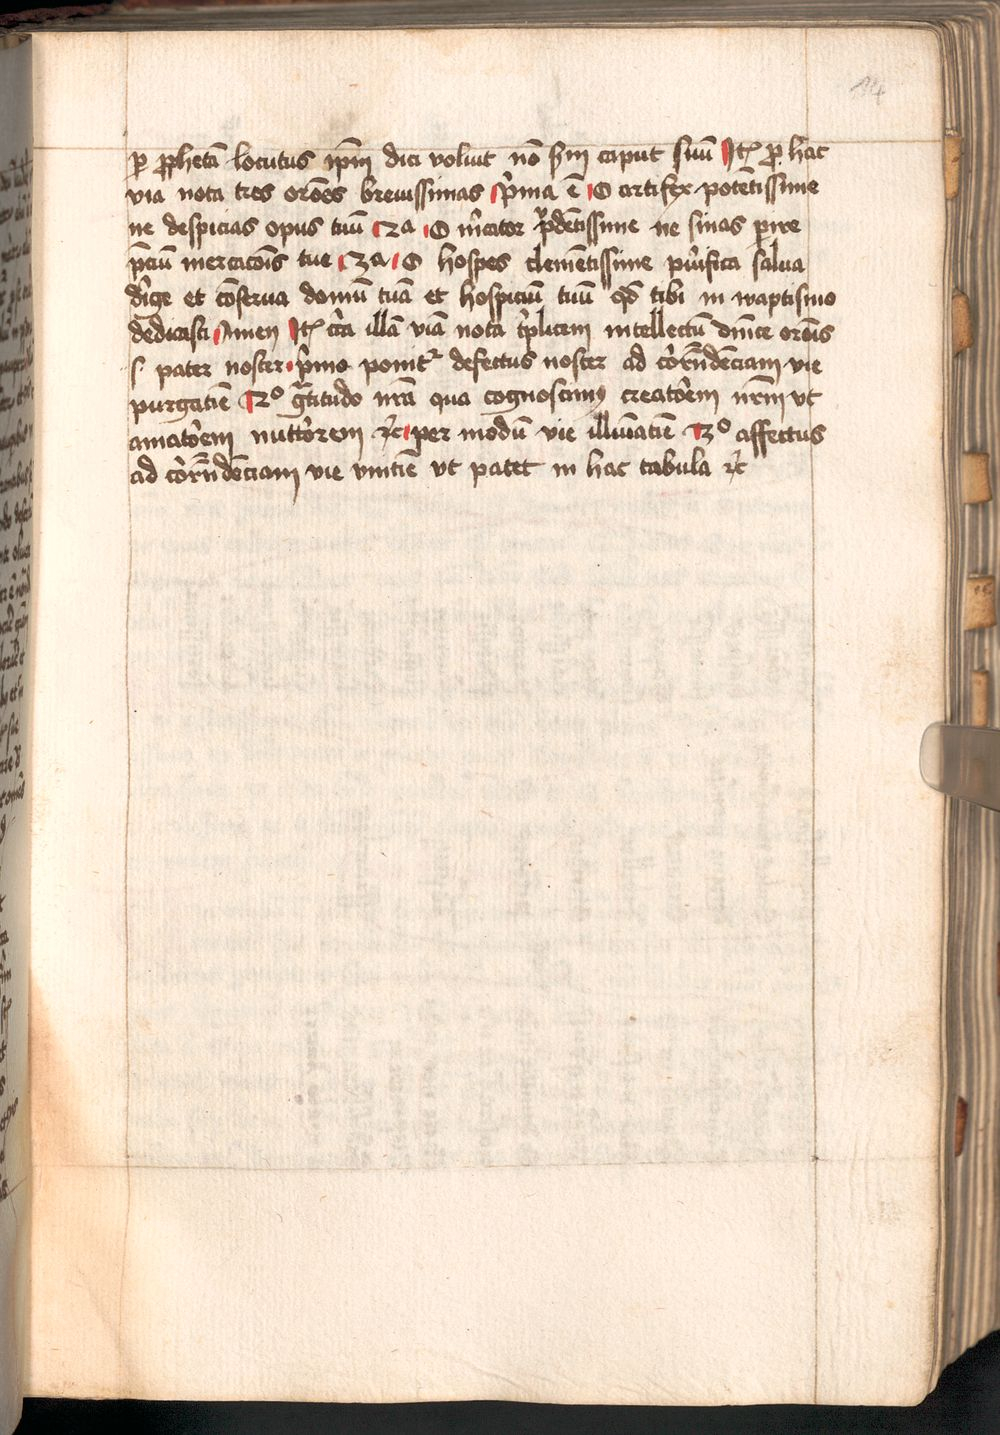 14
ꝑ ꝓphetā locutus ip̄m dici voluit nō s̄m caput suū Itē pro hac
via nota tres orōes breuissimas p̄ma ē O artifex potētissime
ne despicias opus tuū 2a O m̄cator p̄dētissime ne sinas ꝑire
p̄ciū mercacōis tue 3a O hospes clemētissime purifica salua
dirige et cōserua domū tuā et hospiciū tuū qd̄ tibi in waptismo
dedicasti Amen Itē circa illā viā nota t̄plicem intellectū dn̄ice orōis
s pater noster p̄mo ponit᷑ defectus noster ad cor̄n̄dēciam vie
purgatiē 2º g̃titudo nr̄a qua cognoscimꝰ creatōrem nr̄m vt
amatōrem nutt̄orem ⁊c per modū vie illūīatiē 3º affectus
ad cor̄n̄dēciam vie vnitiē vt patet in hac tabula ⁊c